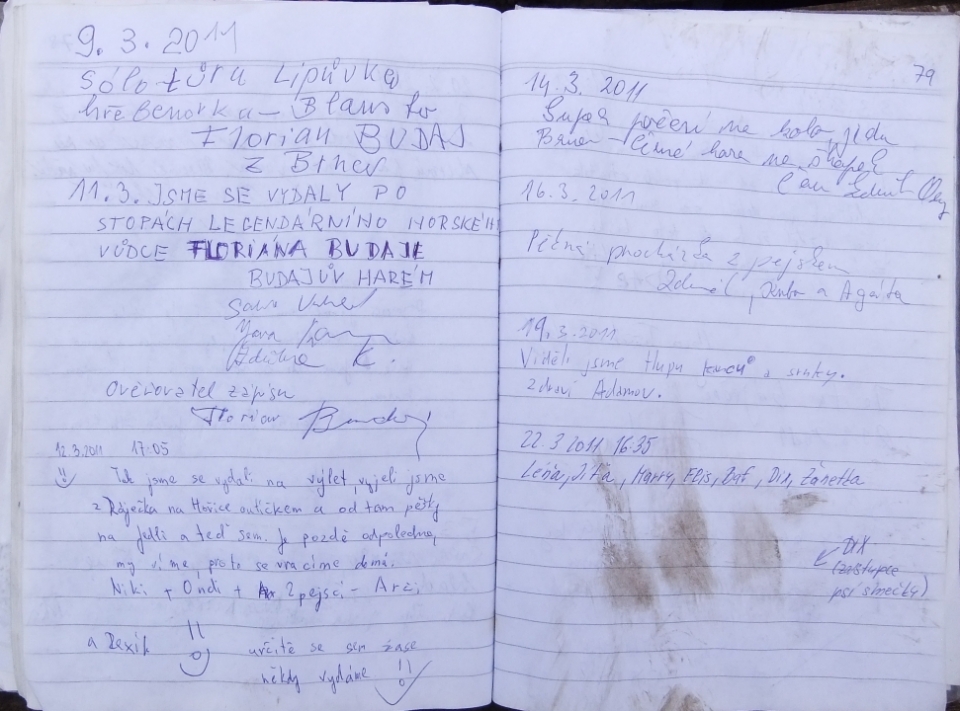 9. 3. 2011
Sólo túra Lipůvka
hřebenovka – Blansko
Florian BUDAJ
z Brna
11.3. JSME SE VYDALY PO
STOPÁCH LEGENDÁRNÍHO HORSKÉH
VŮDCE FLORIÁNA BUDAJE
BUDAJŮV HARÉM
Jana
K.
Ověřovatel zápisu
Florian Budaj
12.3.2011 17:05
jsme se vydali na výlet, vyjeli jsme
z Ráječka na Hořice autíčkem a od tam pěšky
na Jedli a teď sem. Je pozdě odpoledne,
my víme, proto se vracíme domů.
Niki + Ondi + 2 pejsci – Arzi
a Rexík
určitě se sem zase
někdy vydáme
79
14.3. 2011
Super počasí na kolo jedu
Brno –
16.3. 2011
Pěkná procházka z pejskem
Zdeněk, a Agáta
19.3.2011
Viděli jsme tlupu kanců a srnky.
zdraví Adamov.
22.3 2011 16:35
Lena, Jiťa, Harry, Elis, Baf, Dix, Žanetka
DIX
(zástupce
psí smečky)